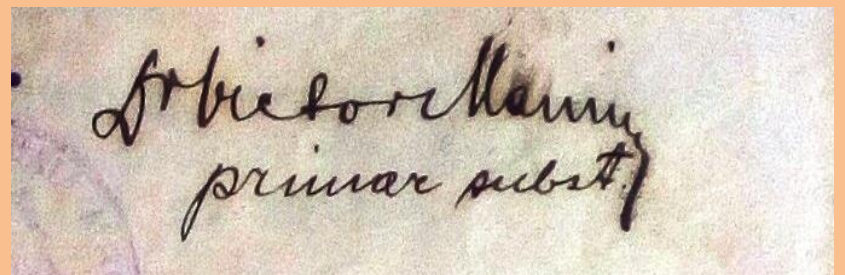 Dr Victor Maniu
primar subst.